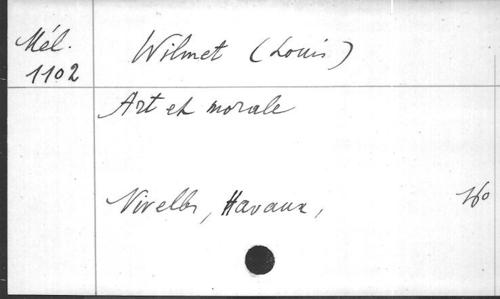 Mél. 1102
Wilmet (Louis)
Art et morale
Nivelles, Havaux,